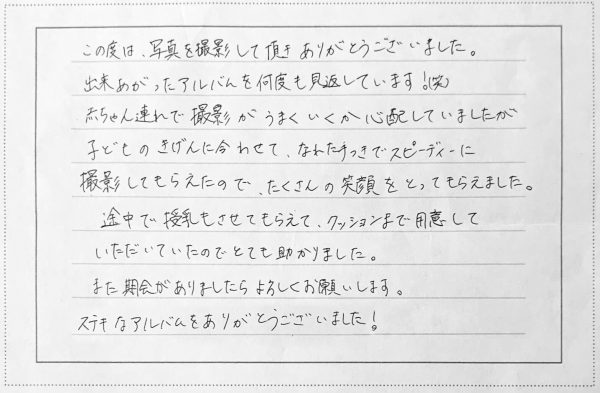 この度は、写真を撮影して頂きありがとうございました。
出来あがったアルバムを何度も見返しています!(笑)
赤ちゃん連れで撮影がうまくいくか心配していましたが
子どものきげんに合わせて、なれた手つきでスピーディーに
撮影してもらえたので、たくさんの笑顔をとってもらえました。
途中で授乳もさせてもらえて、クッションまで用意して
いただいていたのでとても助かりました。
また期会がありましたらよろしくお願いします。
ステキなアルバムをありがとうございました!